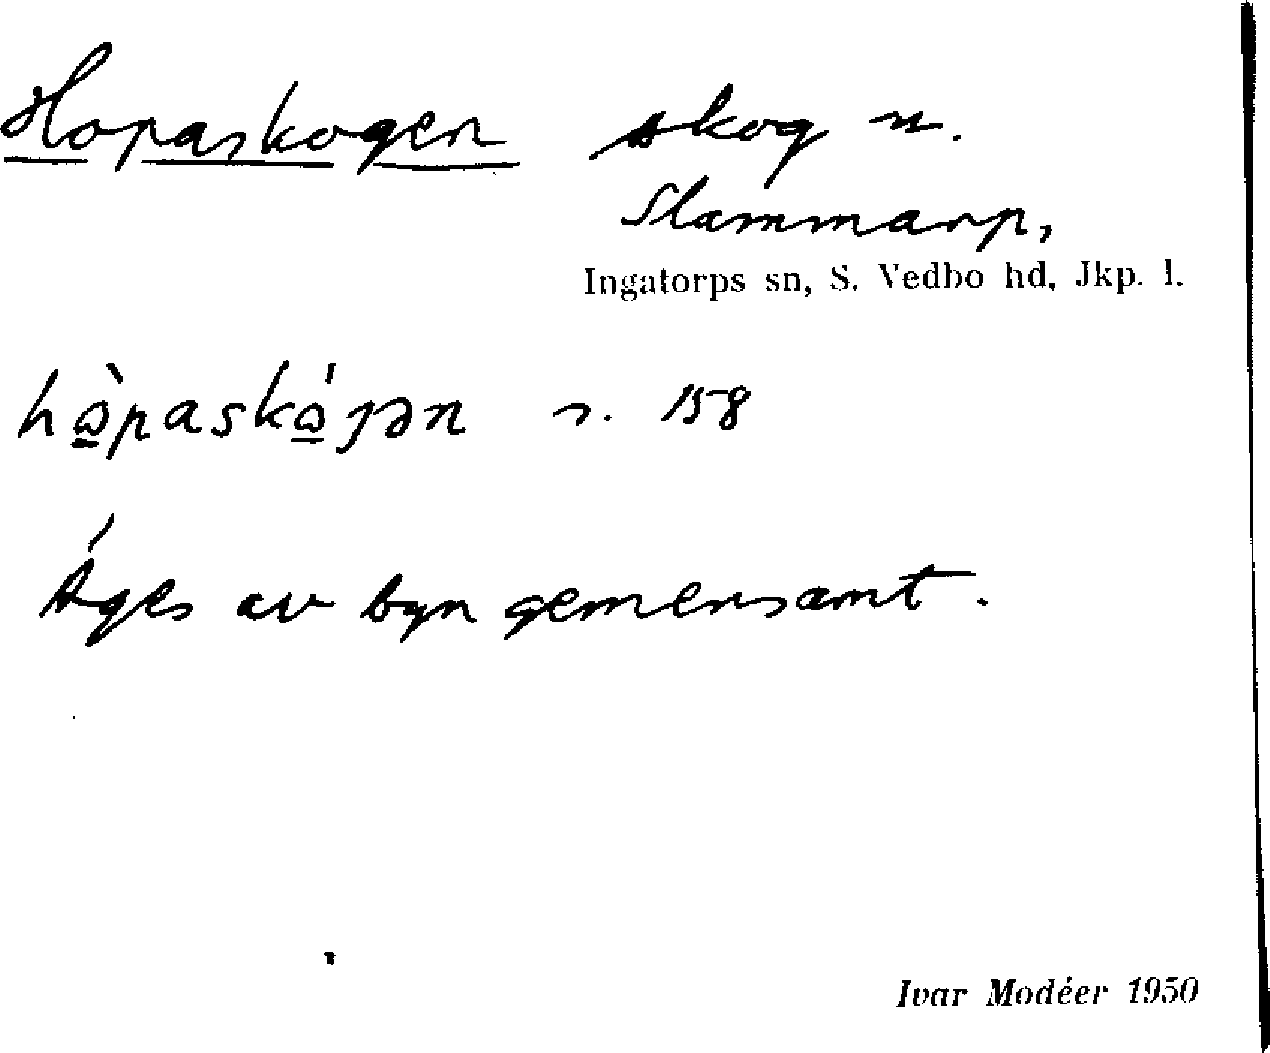 Hopaskogen skog n.
Slammarp,
Ingatorps sn, S. Vedbo hd, Jkp. l.
s. 158
Äges av byn gemensamt.
Ivar Modéer 1950